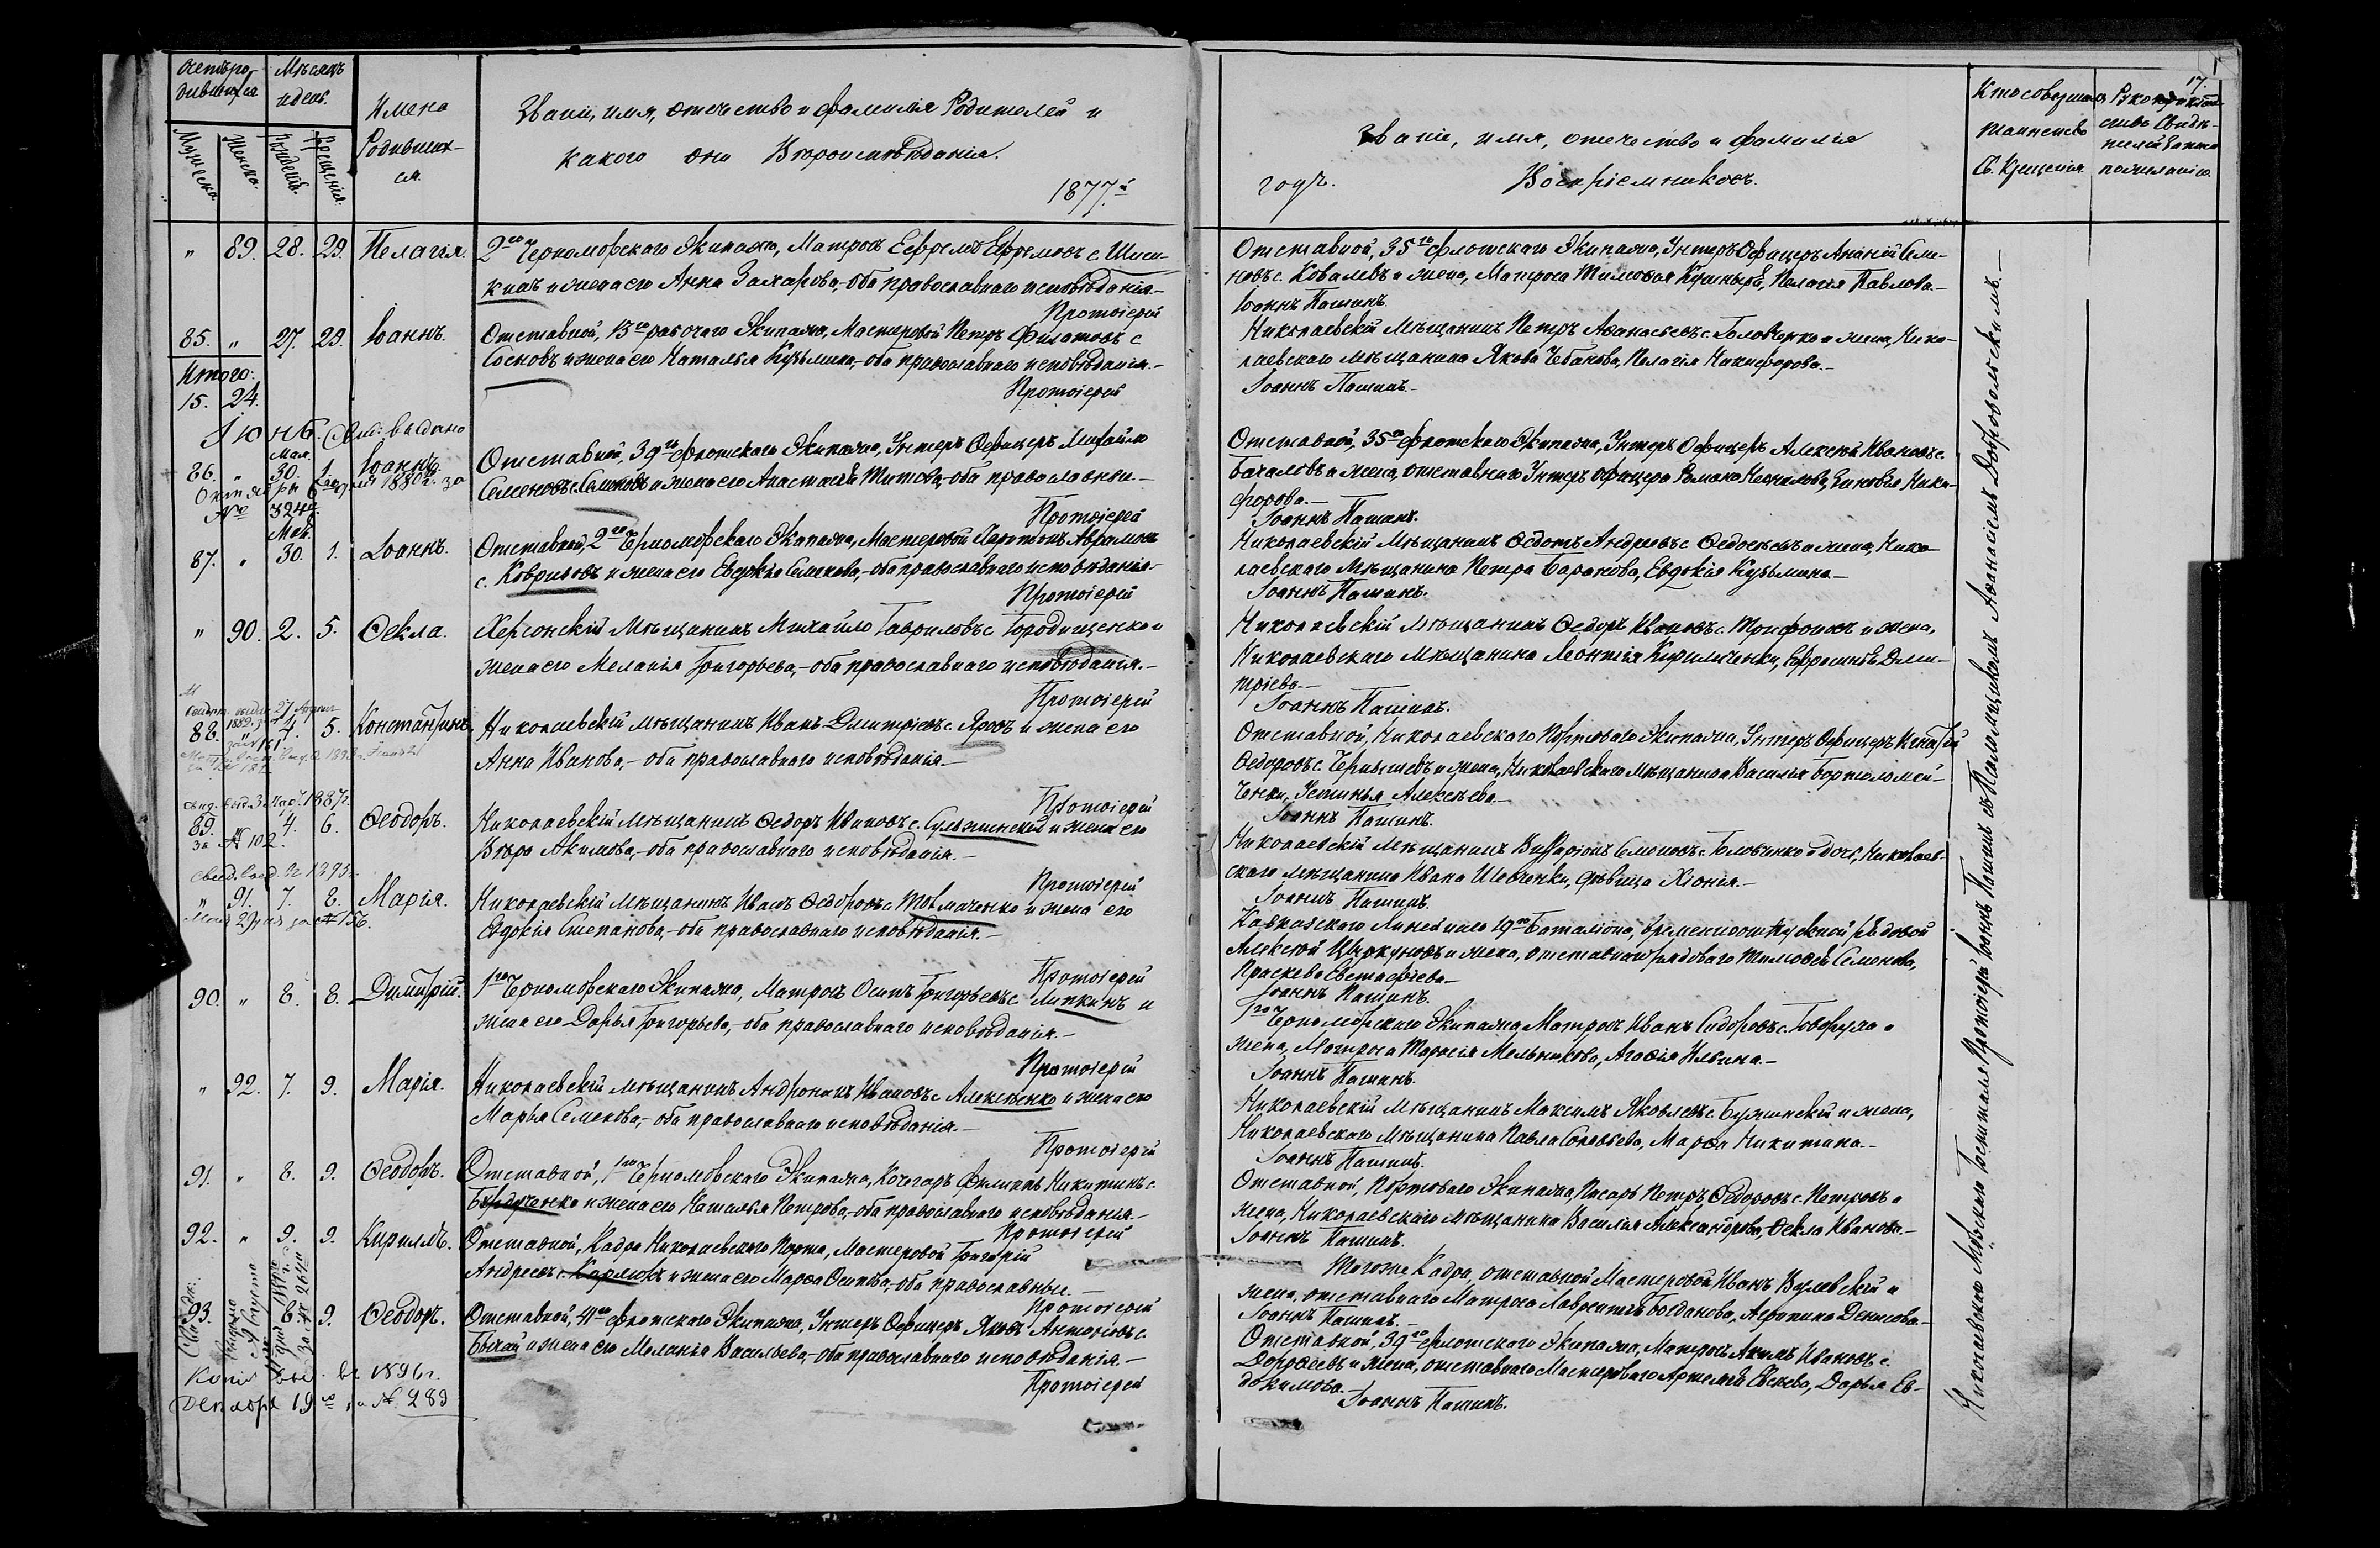 Мѣсяцъ
и день.
Имена
Родивших-
ся.
Званіе, имя, отечество и фамилія Родителей и
какого они Вѣроисповѣданія.
1877.й
Мужеска.
Женска.
Рожденія.
Крещенія.
" 89. 28. 29. Пелагія.
2го Черноморского Экипажа, Матросъ Ефремъ Ефремовъ с.
и жена его Анна Захарова,-оба православнаго исповѣданія.-
Протоіерей
85. " 27. 29. Іоаннъ.
Отставной, 13го рабочаго Экипажа, Мастеровой Петръ Филатовъ с
Сосновъ и жена его Наталья Кузьмина,-оба православнаго исповѣданія.-
Протоіерей
Итого:
15. 24.
Іюнь. Свид: выдано
86. " Мая. 30. 1. Іоаннъ.
Октября 6го дня 1880 г. за
№ 324м.
Отставной, 39го флотскаго Экипажа, Унтеръ Офицеръ Михайло
Семеновъ с. Семеновъ и жена его Анастасія Титова,-оба православные.-
Протоіерей
Мая.
87. " 30. 1. Іоаннъ.
Отставной, 2го Черноморскаго Экипажа, Мастеровой Харитонъ Аврамовъ
с. Ковриновъ и жена его Евдокія Семенова,-оба православнаго исповѣданія-
Протоіерей
" 90. 2. 5. Ѳекла.
Херсонскій Мѣщанинъ Михайло Гавриловъ с. Городищенко и
жена его Меланія Григорьева,-оба православнаго исповѣданія.-
Протоіерей
27 Апреля
1889.
88. " 4. 5. Константинъ.
Николаевскій мѣщанинъ Иванъ Димитріевъ с. Яровъ и жена его
Анна Иванова,-оба православнаго исповѣданія-
Протоіерей
Свид. выд. 3 Мар. 1887г.
89. 4. 6. Ѳеодоръ.
за № 102.
Николаевскій мѣщанинъ Ѳедоръ Ивановъ с. Сулъжинскій и жена его
Вѣра Акимова,-оба православнаго исповѣданія.-
Протоіерей
Свид. выд. 1895г.
" 91. 7. 8. Марія.
Мая 29 дня за № 156.
Николаевскій Мѣщанинъ Иванъ Ѳедоровъ с. Товмаченко и жена его
Евдокія Степанова,-оба православнаго исповѣданія.-
Протоіерей
90. " 8. 8. Димитрій.
1го Черноморскаго Экипажа, Матросъ Осипъ Григорьевъ с. Липкинъ и
жена его Дарья Григорьева,-оба православнаго исповѣданія.-
Протоіерей
" 92. 7. 9. Марія.
Николаевскій мѣщанинъ Андроникъ Ивановъ с. Алексѣенко и жена его
Марья Семенова,-оба православнаго исповѣданія.-
Протоіерей
91. " 8. 9. Ѳеодоръ.
Отставной, 1го Черноморскаго Экипажа, Кочегаръ Филипъ Никитинъ с.
и жена его Наталья Петрова,-оба православнаго исповѣданія.-
Протоіерей
92. " 9. 9. Кириллъ.
Отставной, Кадра Николаевскаго Порта, Мастеровой Григорій
Андреевъ с. Карповъ и жена его Марѳа Осипова,-оба православные.-
Протоіерей
93. 8. 9. Ѳеодоръ.
Отставной, 41го флотскаго Экипажа, Унтеръ Офицеръ Яковъ Антоновъ с.
и жена его Меланія Васильева,-оба православнаго исповѣданія.-
Протоіерей
Свид:
Выдано
Августа
за № 264м
Копія выд. въ 1896г.
Декабря 19го за № 289
17.
Званіе, имя, отечество и фамилія
годъ. Воспріемниковъ.
Кто совершалъ
таинство
Св. Крещенія.
Рукоприклад-
ство Свидѣ-
телей записи
по желанію.
Отставной, 35го флотскаго Экипажа, Унтеръ Офицеръ Ананій Семе-
новъ с. Ковалевъ и жена, Матроса Тимоѳея Кушныря, Пелагея Павлова.-
Іоаннъ Пашинъ.
Николаевскій Мѣщанинъ Петръ Аѳанасьевъ с. Головченко и жена, Нико-
лаевскаго мѣщанина Якова Чебанова, Пелагія Никифорова.-
Іоаннъ Пашинъ.-
Отставной, 35го флотскаго Экипажа, Унтеръ Офицеръ Алексѣй Ивановъ с.
Бакаловъ и жена, отставнаго Унтеръ Офицера Романа Неонилова, Зиновія Ники-
форова.-
Іоаннъ Пашинъ.
Николаевскій Мѣщанинъ Ѳедотъ Андреевъ с Ѳедосѣевъ и жена, Нико-
лаевскаго Мѣщанина Петра Баранова, Евдокія Кузьмина.-
Іоаннъ Пашинъ.
Николаевскій Мѣщанинъ Ѳедоръ Ивановъ с. Трифоновъ и жена,
Николаевскаго Мѣщанина Леонтія Кириличенки, Евфросинія Дми-
тріева.-
Іоаннъ Пашинъ.
Отставной, Николаевскаго Портоваго Экипажа, Унтеръ Офицеръ Игнатій
Ѳедоровъ с. Чернышевъ и жена, Николаевскаго Мѣщанина Василія Бортоломей-
ченки, Устинья Алексѣева.-
Іоаннъ Пашинъ.
Николаевскій Мѣщанинъ Виссаріонъ Семеновъ с. Головченко и дочь, Николаев-
скаго мѣщанина Ивана Шевченки, дѣвица Хіонія.-
Іоаннъ Пашинъ.
Кавказскаго Линейнаго 19го Баталіона, временноотпускной рядовой
Алексѣй Циркуновъ и жена, отставнаго рядоваго Тимоѳея Семенова,
Праскева Евстафіева.-
Іоаннъ Пашинъ.
1го Черноморскаго Экипажа Матросъ Иванъ Сидоровъ с. Говоруха и
жена, Матроса Тарасія Мельникова, Агаѳія Ильина.-
Іоаннъ Пашинъ.
Николаевскій Мѣщанинъ Максимъ Яковлевъ с. Бужинскій и жена,
Николаевскаго Мѣщанина Павла Соловьева, Марѳа Никитина.-
Іоаннъ Пашинъ.
Отставной, Портоваго Экипажа, Писарь Петръ Ѳедоровъ с. Петровъ и
жена, Николаевскаго мѣщанина Василія Александрова, Ѳекла Иванова.-
Іоаннъ Пашинъ.
Тогоже Кадра, отставной Мастеровой Иванъ и
жена, отставнаго Матроса Лаврентія Богданова, Агрипина Денисова.-
Іоаннъ Пашинъ.-
Отставной, 39го флотскаго Экипажа, Матросъ Акимъ Ивановъ с.
Дорофеевъ и жена, отставнаго Мастероваго Артемія Евсѣева, Дарья Ев-
докимова.-
Іоаннъ Пашинъ.
Николаевскаго Морскаго Госпиталя Протоіерей Іоаннъ Пашинъ съ Псаломщикомъ Аѳанасіемъ Добровольскимъ.-